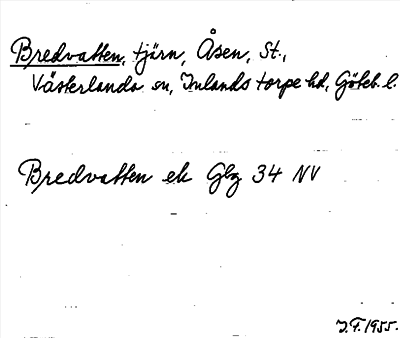 Bredvatten, tjärn, Åsen, St.,
Västerlanda sn, Inlands torpe hd, Göteb. l.
Bredvatten ek Gbg 34 NV
J.F. 1955.